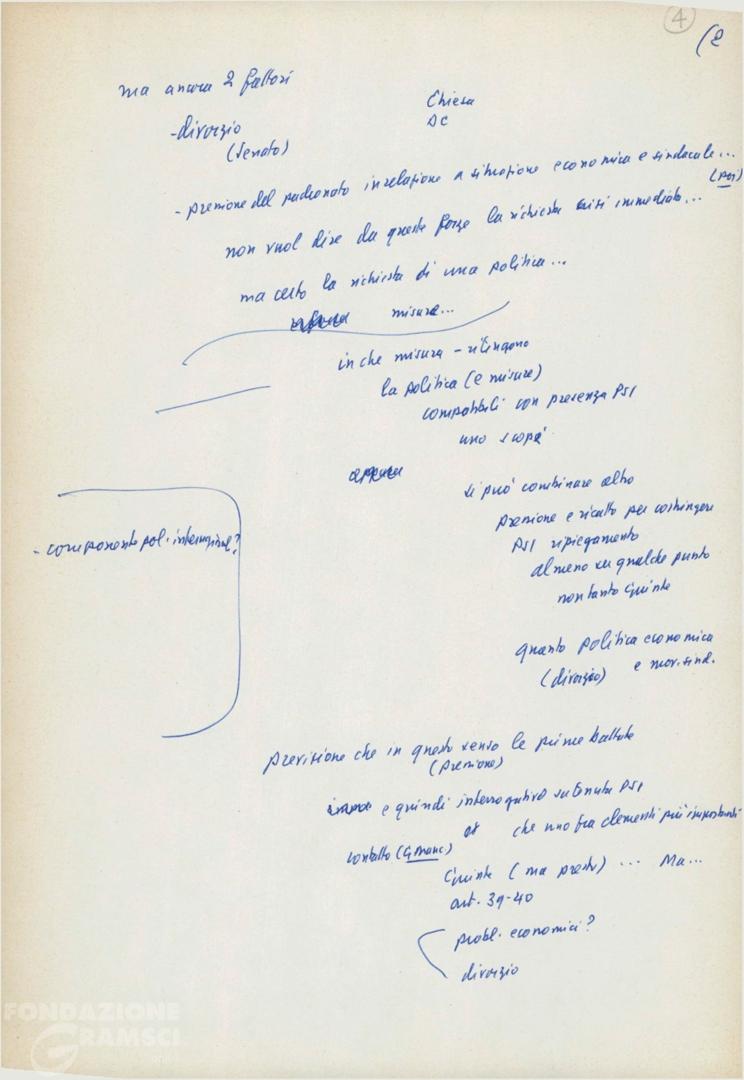 4
(2
ma ancora 2 fattori
Chiesa
DC
- divorzio
(Senato)
- pressione del padronato in relazione a situazione economica e sindacale...
(PSI)
non vuol dire da queste forze la richiesta crisi immediata...
ma certo la richiesta di una politica...
misure...
in che misura - ritengono
la politica (e misure)
compatibili con presenza PSI
uno scopo
oppure
si può combinare altro
pressione e ricatto per costringere
PSI ripiegamento
almeno su qualche punto
non tanto Giunte
- componente pol. internazional?
quanto politica economica
(divorzio) e mov. sind.
previsione che in questo senso le prime battute
(pressione)
e quindi interrogativo su tenuta PSI
che uno fra elementi più importanti
contatto (G. Manc.)
Giunte (ma presto) ... Ma...
art. 39-40
probl. economici?
divorzio
FONDAZIONE
GRAMSCI